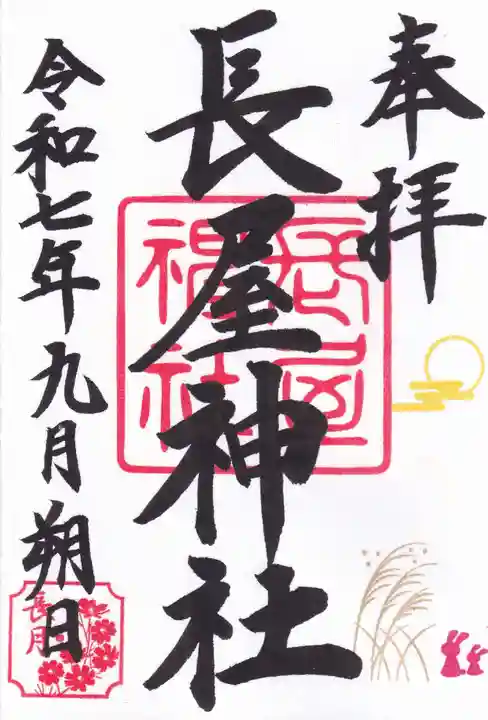 奉拝
長屋神社
令和七年九月朔日
長月